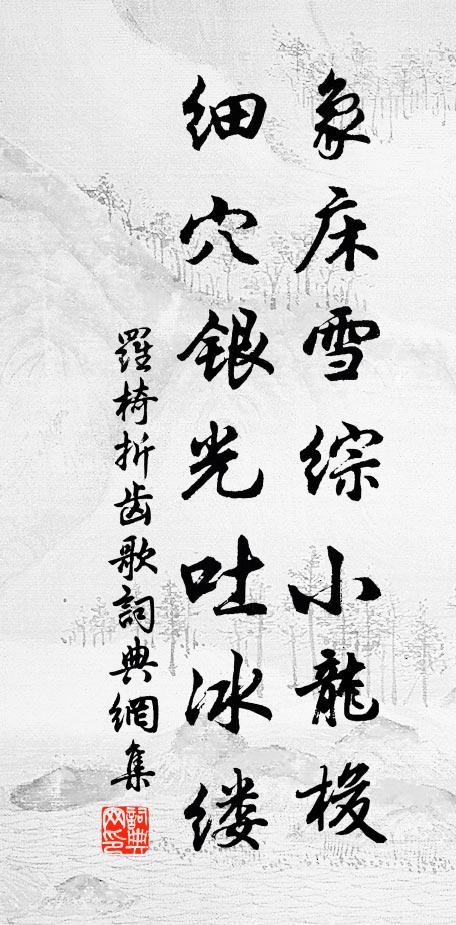 象床雪综小龍梭
细穴银光吐冰缕
羅椅折齿歌詞典網集
詞典网印